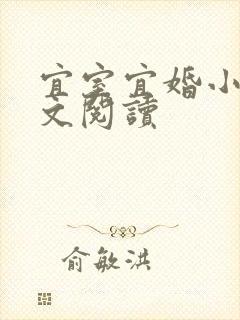 宜室宜婚小
文閱讀
俞敏洪